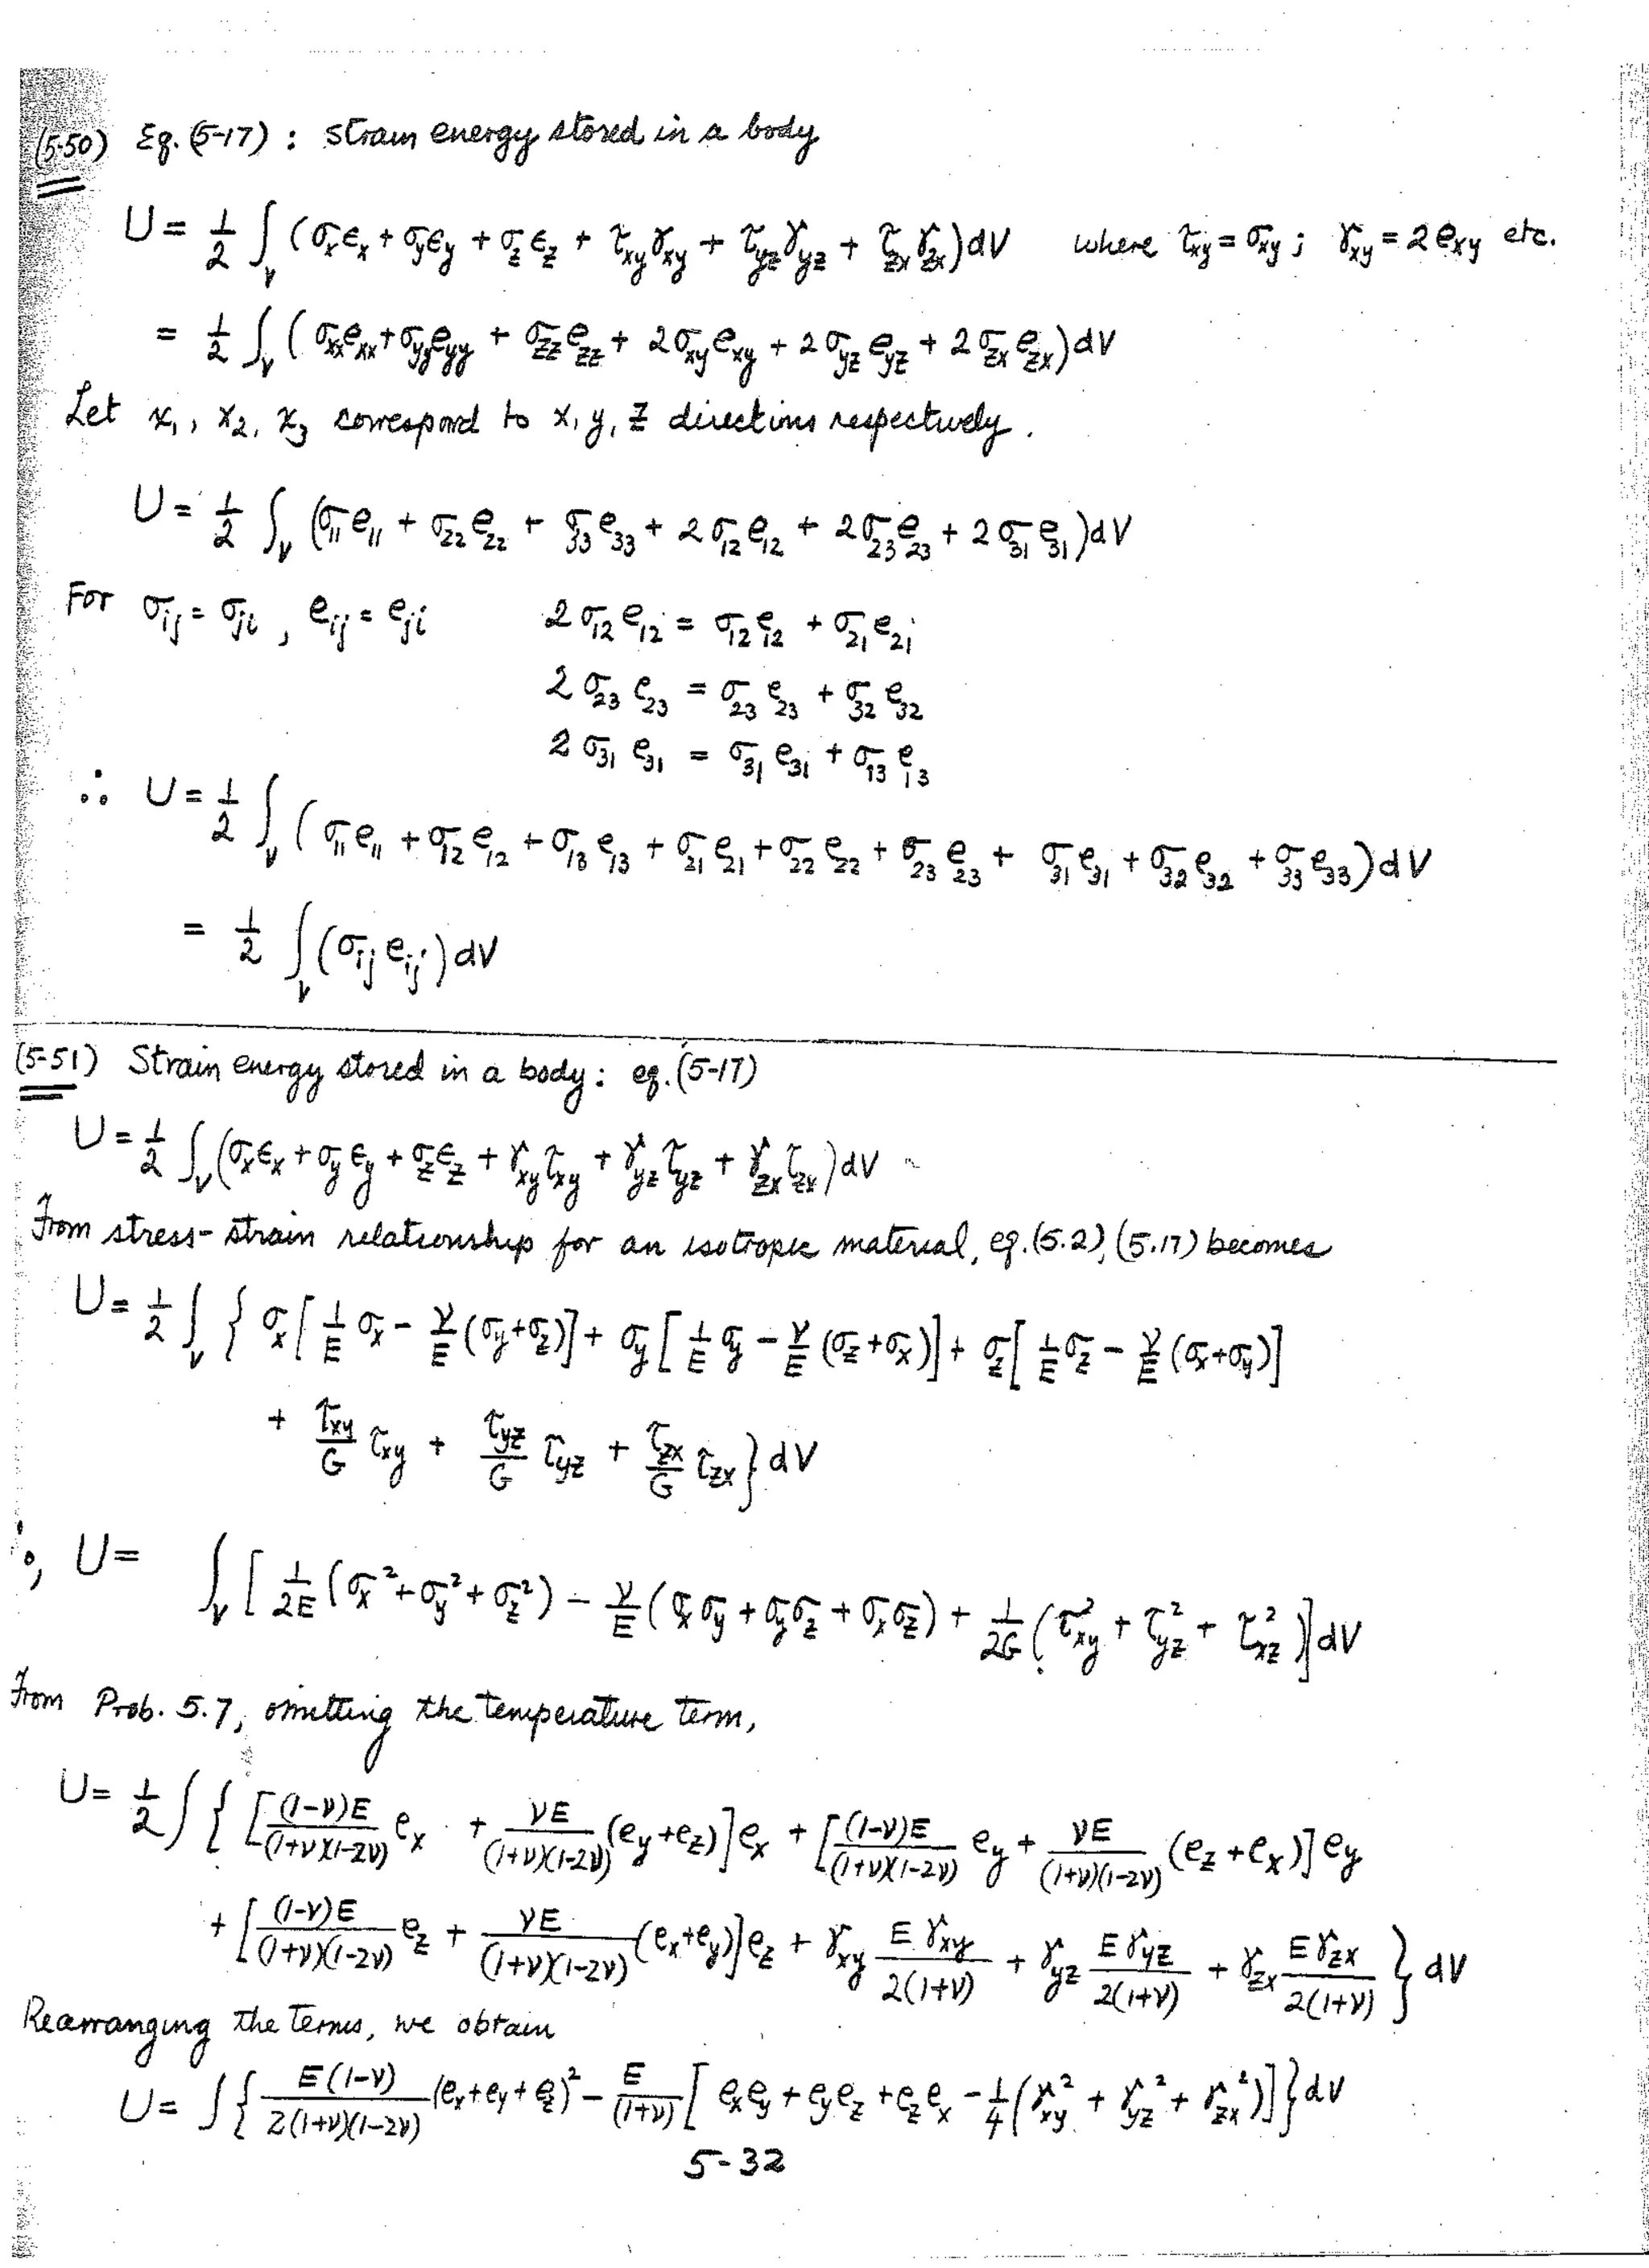 (5-50) Eq. (5-17) : strain energy stored in a body
U = 1/2 ∫_V (σx ϵx + σy ϵy + σz ϵz + τxy γxy + τyz γyz + τzx γzx) dV where τxy = σxy ; γxy = 2 exy etc.
= 1/2 ∫_V (σxx exx + σyy eyy + σzz ezz + 2 σxy exy + 2 σyz eyz + 2 σzx ezx) dV
Let x1, x2, x3 correspond to x, y, z directions respectively.
U = 1/2 ∫_V (σ11 e11 + σ22 e22 + σ33 e33 + 2 σ12 e12 + 2 σ23 e23 + 2 σ31 e31) dV
For σij = σji , eij = eji 2 σ12 e12 = σ12 e12 + σ21 e21
2 σ23 e23 = σ23 e23 + σ32 e32
2 σ31 e31 = σ31 e31 + σ13 e13
∴ U = 1/2 ∫_V (σ11 e11 + σ12 e12 + σ13 e13 + σ21 e21 + σ22 e22 + σ23 e23 + σ31 e31 + σ32 e32 + σ33 e33) dV
= 1/2 ∫_V (σij eij) dV
(5-51) Strain energy stored in a body : eq. (5-17)
U = 1/2 ∫_V (σx ϵx + σy ϵy + σz ϵz + γxy τxy + γyz τyz + γzx τzx) dV
From stress-strain relationship for an isotropic material, eq. (5.2), (5.17) becomes
U = 1/2 ∫_V { σx [1/E σx - ν/E (σy + σz)] + σy [1/E σy - ν/E (σz + σx)] + σz [1/E σz - ν/E (σx + σy)]
+ τxy/G τxy + τyz/G τyz + τzx/G τzx } dV
∴, U = ∫_V [ 1/2E (σx² + σy² + σz²) - ν/E (σx σy + σy σz + σx σz) + 1/2G (τxy² + τyz² + τxz²)] dV
From Prob. 5.7, omitting the temperature term,
U = 1/2 ∫ { [(1-ν)E/(1+ν)(1-2ν) ex + νE/(1+ν)(1-2ν) (ey + ez)] ex + [(1-ν)E/(1+ν)(1-2ν) ey + νE/(1+ν)(1-2ν) (ez + ex)] ey
+ [(1-ν)E/(1+ν)(1-2ν) ez + νE/(1+ν)(1-2ν) (ex + ey)] ez + γxy E γxy/2(1+ν) + γyz E γyz/2(1+ν) + γzx E γzx/2(1+ν) } dV
Rearranging the terms, we obtain
U = ∫ { E(1-ν)/2(1+ν)(1-2ν) (ex + ey + ez)² - E/(1+ν) [ ex ey + ey ez + ez ex - 1/4 (γxy² + γyz² + γzx²)] } dV
5-32